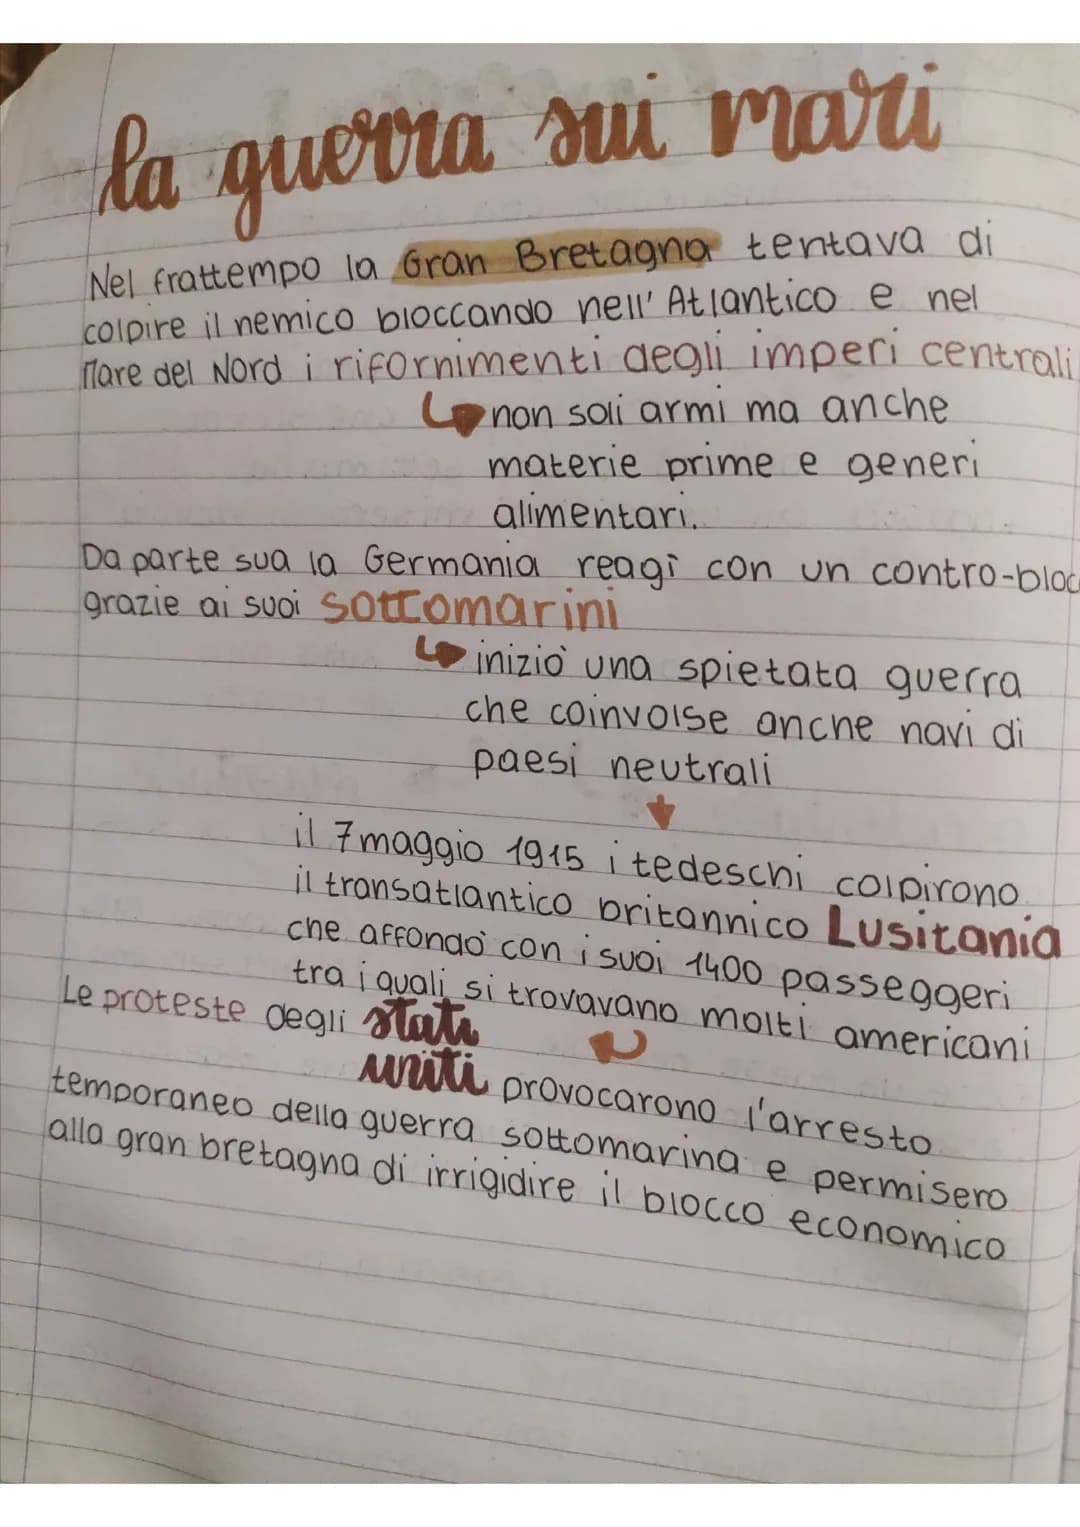 la guerra sui mari
Nel frattempo la Gran Bretagna tentava di
colpire il nemico bloccando nell'Atlantico e nel
Mare del Nord i rifornimenti degli imperi centrali
non soli armi ma anche
materie prime e generi
alimentari.
Da parte sua la Germania reagì con un contro-bloc
grazie ai suoi sottomarini
iniziò una spietata guerra
che coinvolse anche navi di
paesi neutrali
il 7 maggio 1915 i tedeschi colpirono
il transatlantico britannico Lusitania
che affondò con i suoi 1400 passeggeri
tra i quali si trovavano molti americani
Le proteste degli stati
uniti provocarono l'arresto
temporaneo della guerra sottomarina e permisero
alla gran bretagna di irrigidire il blocco economico